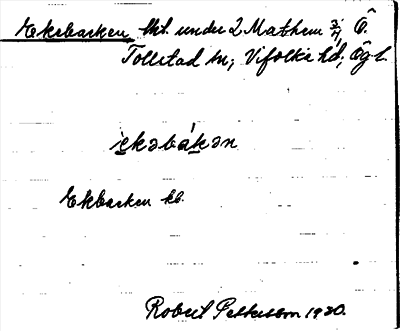 Eksbacken lht. under 2 Mathem 3/4 Ö.
Tollstad sn; Vifolka hd; Ög l.
èkəbákən
Ekbacken kb.
Robert Pettersson 1930.